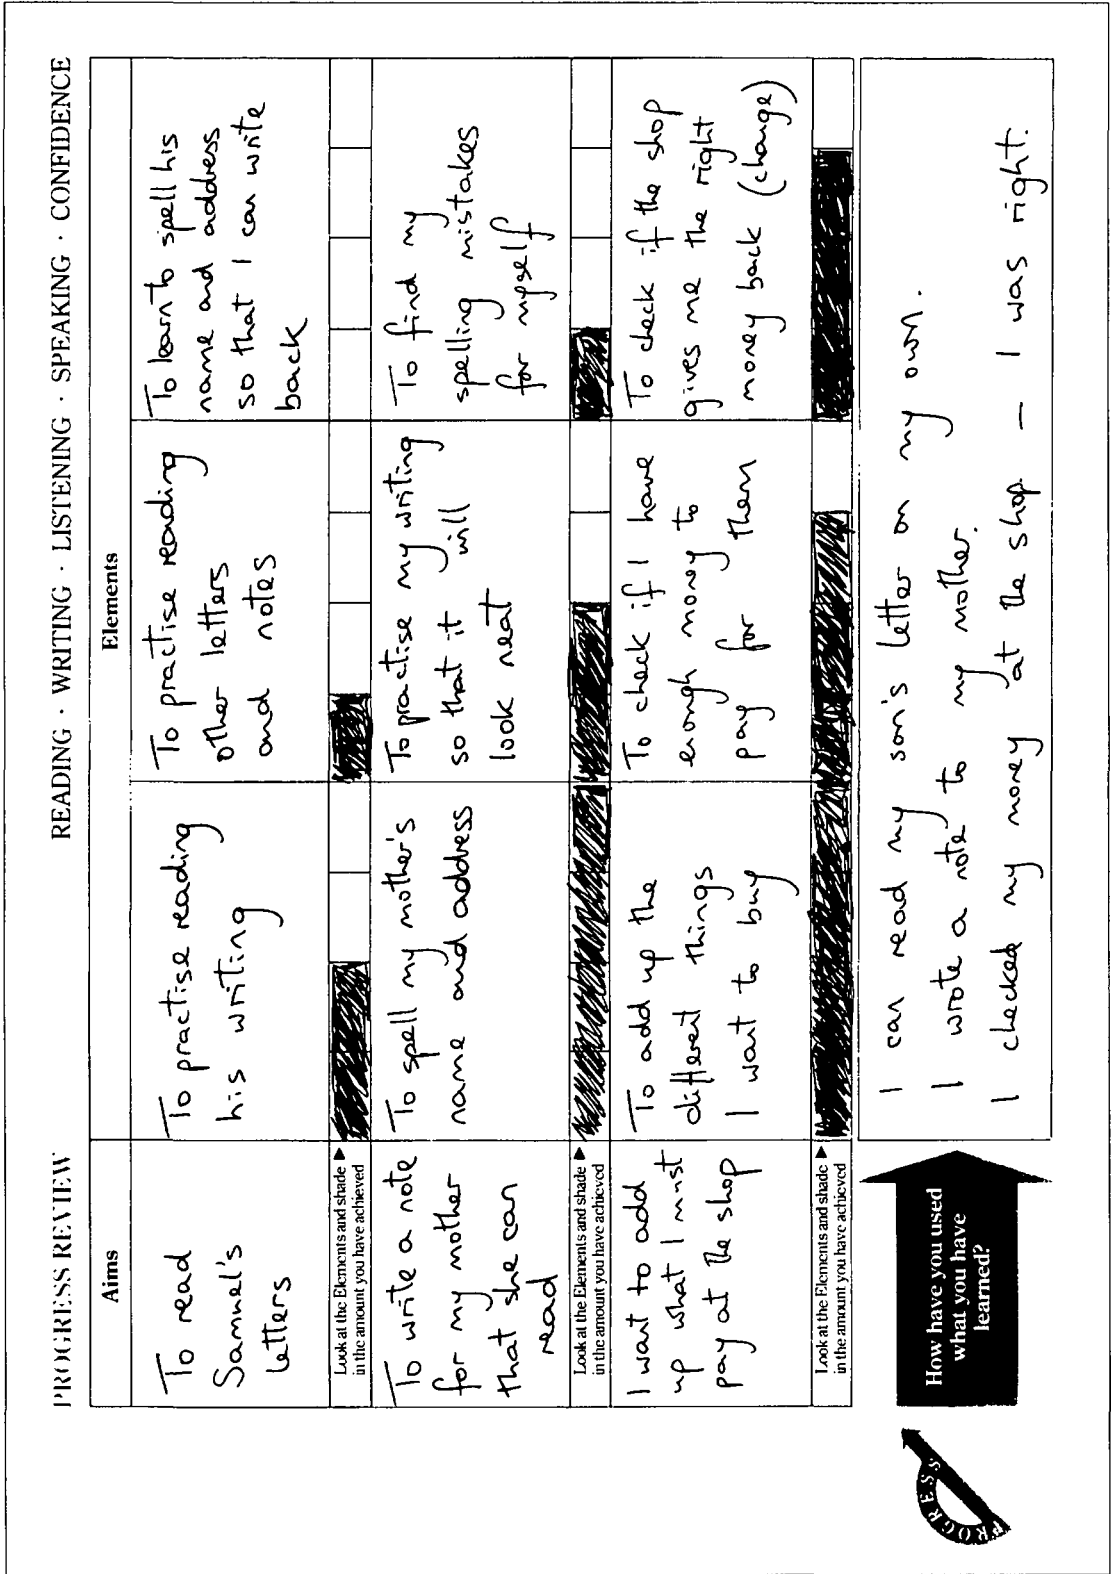 PROGRESS REVIEW
READING · WRITING · LISTENING · SPEAKING · CONFIDENCE
Aims
Elements
To read
Samuel's
letters
To practise reading
his writing
To practise reading
other letters
and notes
To learn to spell his
name and address
so that I can write
back
Look at the Elements and shade ▶
in the amount you have achieved
To write a note
for my mother
that she can
read
To spell my mother's
name and address
To practise my writing
so that it will
look neat
To find my
spelling mistakes
for myself
Look at the Elements and shade ▶
in the amount you have achieved
I want to add
up what I must
pay at the shop
To add up the
different things
I want to buy
To check if I have
enough money to
pay for them
To check if the shop
gives me the right
money back (change)
Look at the Elements and shade ▶
in the amount you have achieved
PROGRESS
How have you used
what you have
learned?
I can read my son's letter on my own.
I wrote a note to my mother.
I checked my money at the shop – I was right.